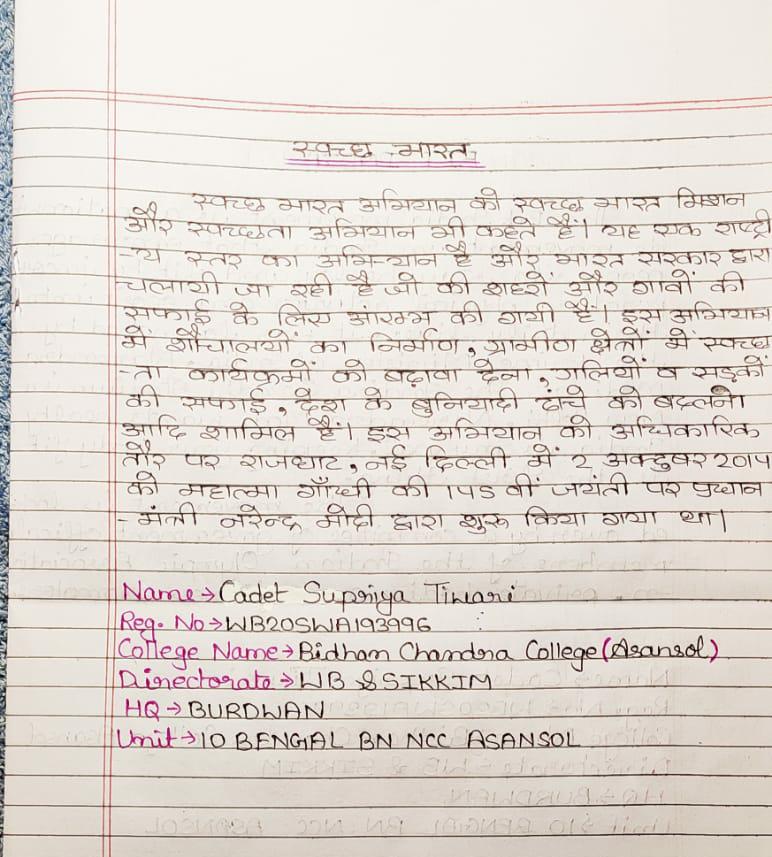 स्वच्छ भारत
स्वच्छ भारत अभियान को स्वच्छ भारत मिशन
और स्वच्छता अभियान भी कहते हैं। यह एक राष्ट्री
-य स्तर का अभियान है और भारत सरकार द्वारा
चलायी जा रही है जो की शहरों और गावों की
सफाई के लिए आरम्भ की गयी है। इस अभियान
में शौचालयों का निर्माण, ग्रामीण क्षेत्रों में स्वच्छ
-ता कार्यक्रमों को बढ़ावा देना, गलियों व सड़कों
की सफाई, देश के बुनियादी ढांचे को बदलना
आदि शामिल हैं। इस अभियान को अधिकारिक
तौर पर राजघाट, नई दिल्ली में 2 अक्टुबर 2014
को महात्मा गाँधी की 145 वीं जयंती पर प्रधान
-मंत्री नरेन्द्र मोदी द्वारा शुरू किया गया था।
Name→Cadet Supriya Tiwari
Reg. No→WB20SWA193996
College Name→Bidhan Chandra College(Asansol)
Directorate→WB & SIKKIM
HQ→BURDWAN
Unit→10 BENGAL BN NCC ASANSOL